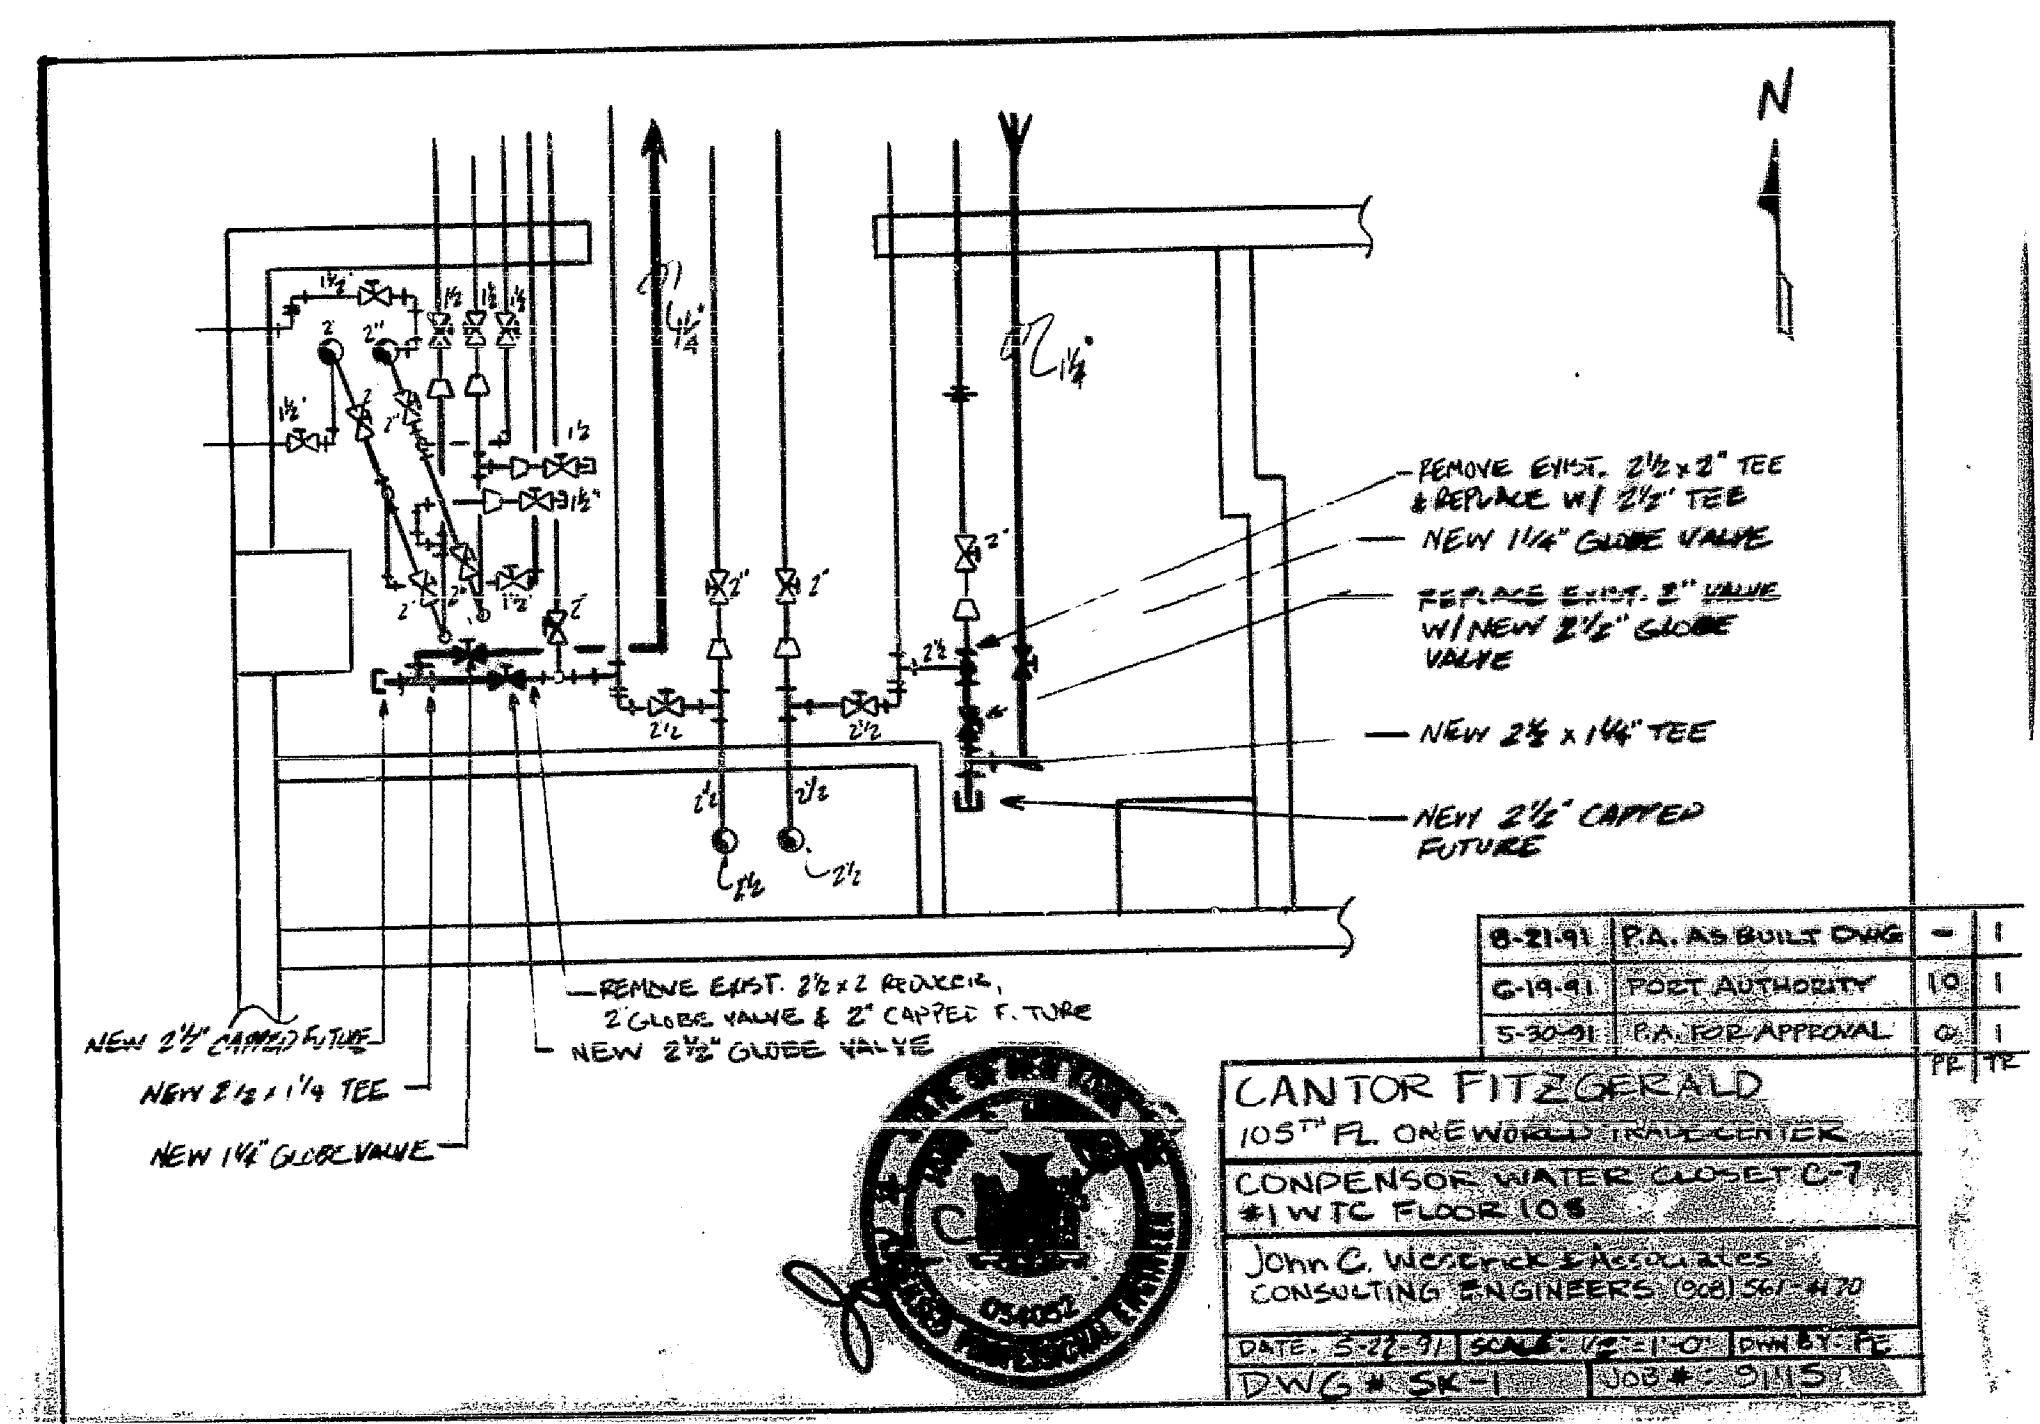 N
1½"
2"
2"
1½
1½
1½
1¼"
1¼"
1½"
2
2"
1½
1½"
2"
2"
2"
2"
1½"
2"
2"
2½
2½
2½
2½
2½
2½
2½
REMOVE EXIST. 2½ x 2" TEE
& REPLACE W/ 2½" TEE
NEW 1¼" GLOBE VALVE
REPLACE EXIST. 2" VALVE
W/ NEW 2½" GLOBE
VALVE
NEW 2½ x 1¼" TEE
NEW 2½" CAPPED
FUTURE
REMOVE EXIST. 2½ x 2 REDUCER,
2" GLOBE VALVE & 2" CAPPED F. TURE
NEW 2½" GLOBE VALVE
NEW 2½" CAPPED FUTURE
NEW 2½ x 1¼ TEE
NEW 1¼" GLOBE VALVE
8-21-91 P.A. AS BUILT DWG - 1
6-19-91 PORT AUTHORITY 10 1
5-30-91 P.A. FOR APPROVAL 0 1
PR TR
CANTOR FITZGERALD
105TH FL. ONE WORLD TRADE CENTER
CONDENSOR WATER CLOSET C-7
#1 WTC FLOOR 105
John C. Westrick & Associates
CONSULTING ENGINEERS (908) 561-
DATE: 5-22-91 SCALE: 1/2"=1'-0" DWN BY: FE
DWG # SK-1 JOB #: 9115
STATE OF NEW YORK
LICENSED PROFESSIONAL ENGINEER
054052